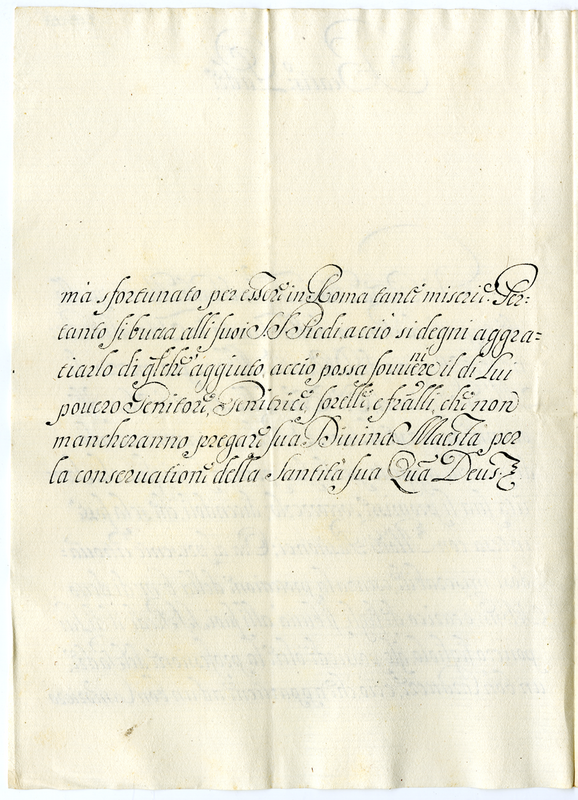 ma sfortunato per essere in Roma tante miserie. Per:
tanto si butta alli suoi SS. Piedi, acciò si degni aggra=
tiarlo di qlche aggiuto, acciò possa sovvenire il di Lui
povero Genitore, Genitrice, sorelle, e fratlli, che non
mancheranno pregare sua Divina Maestà per
la conservatione della Santità sua Quã Deus.